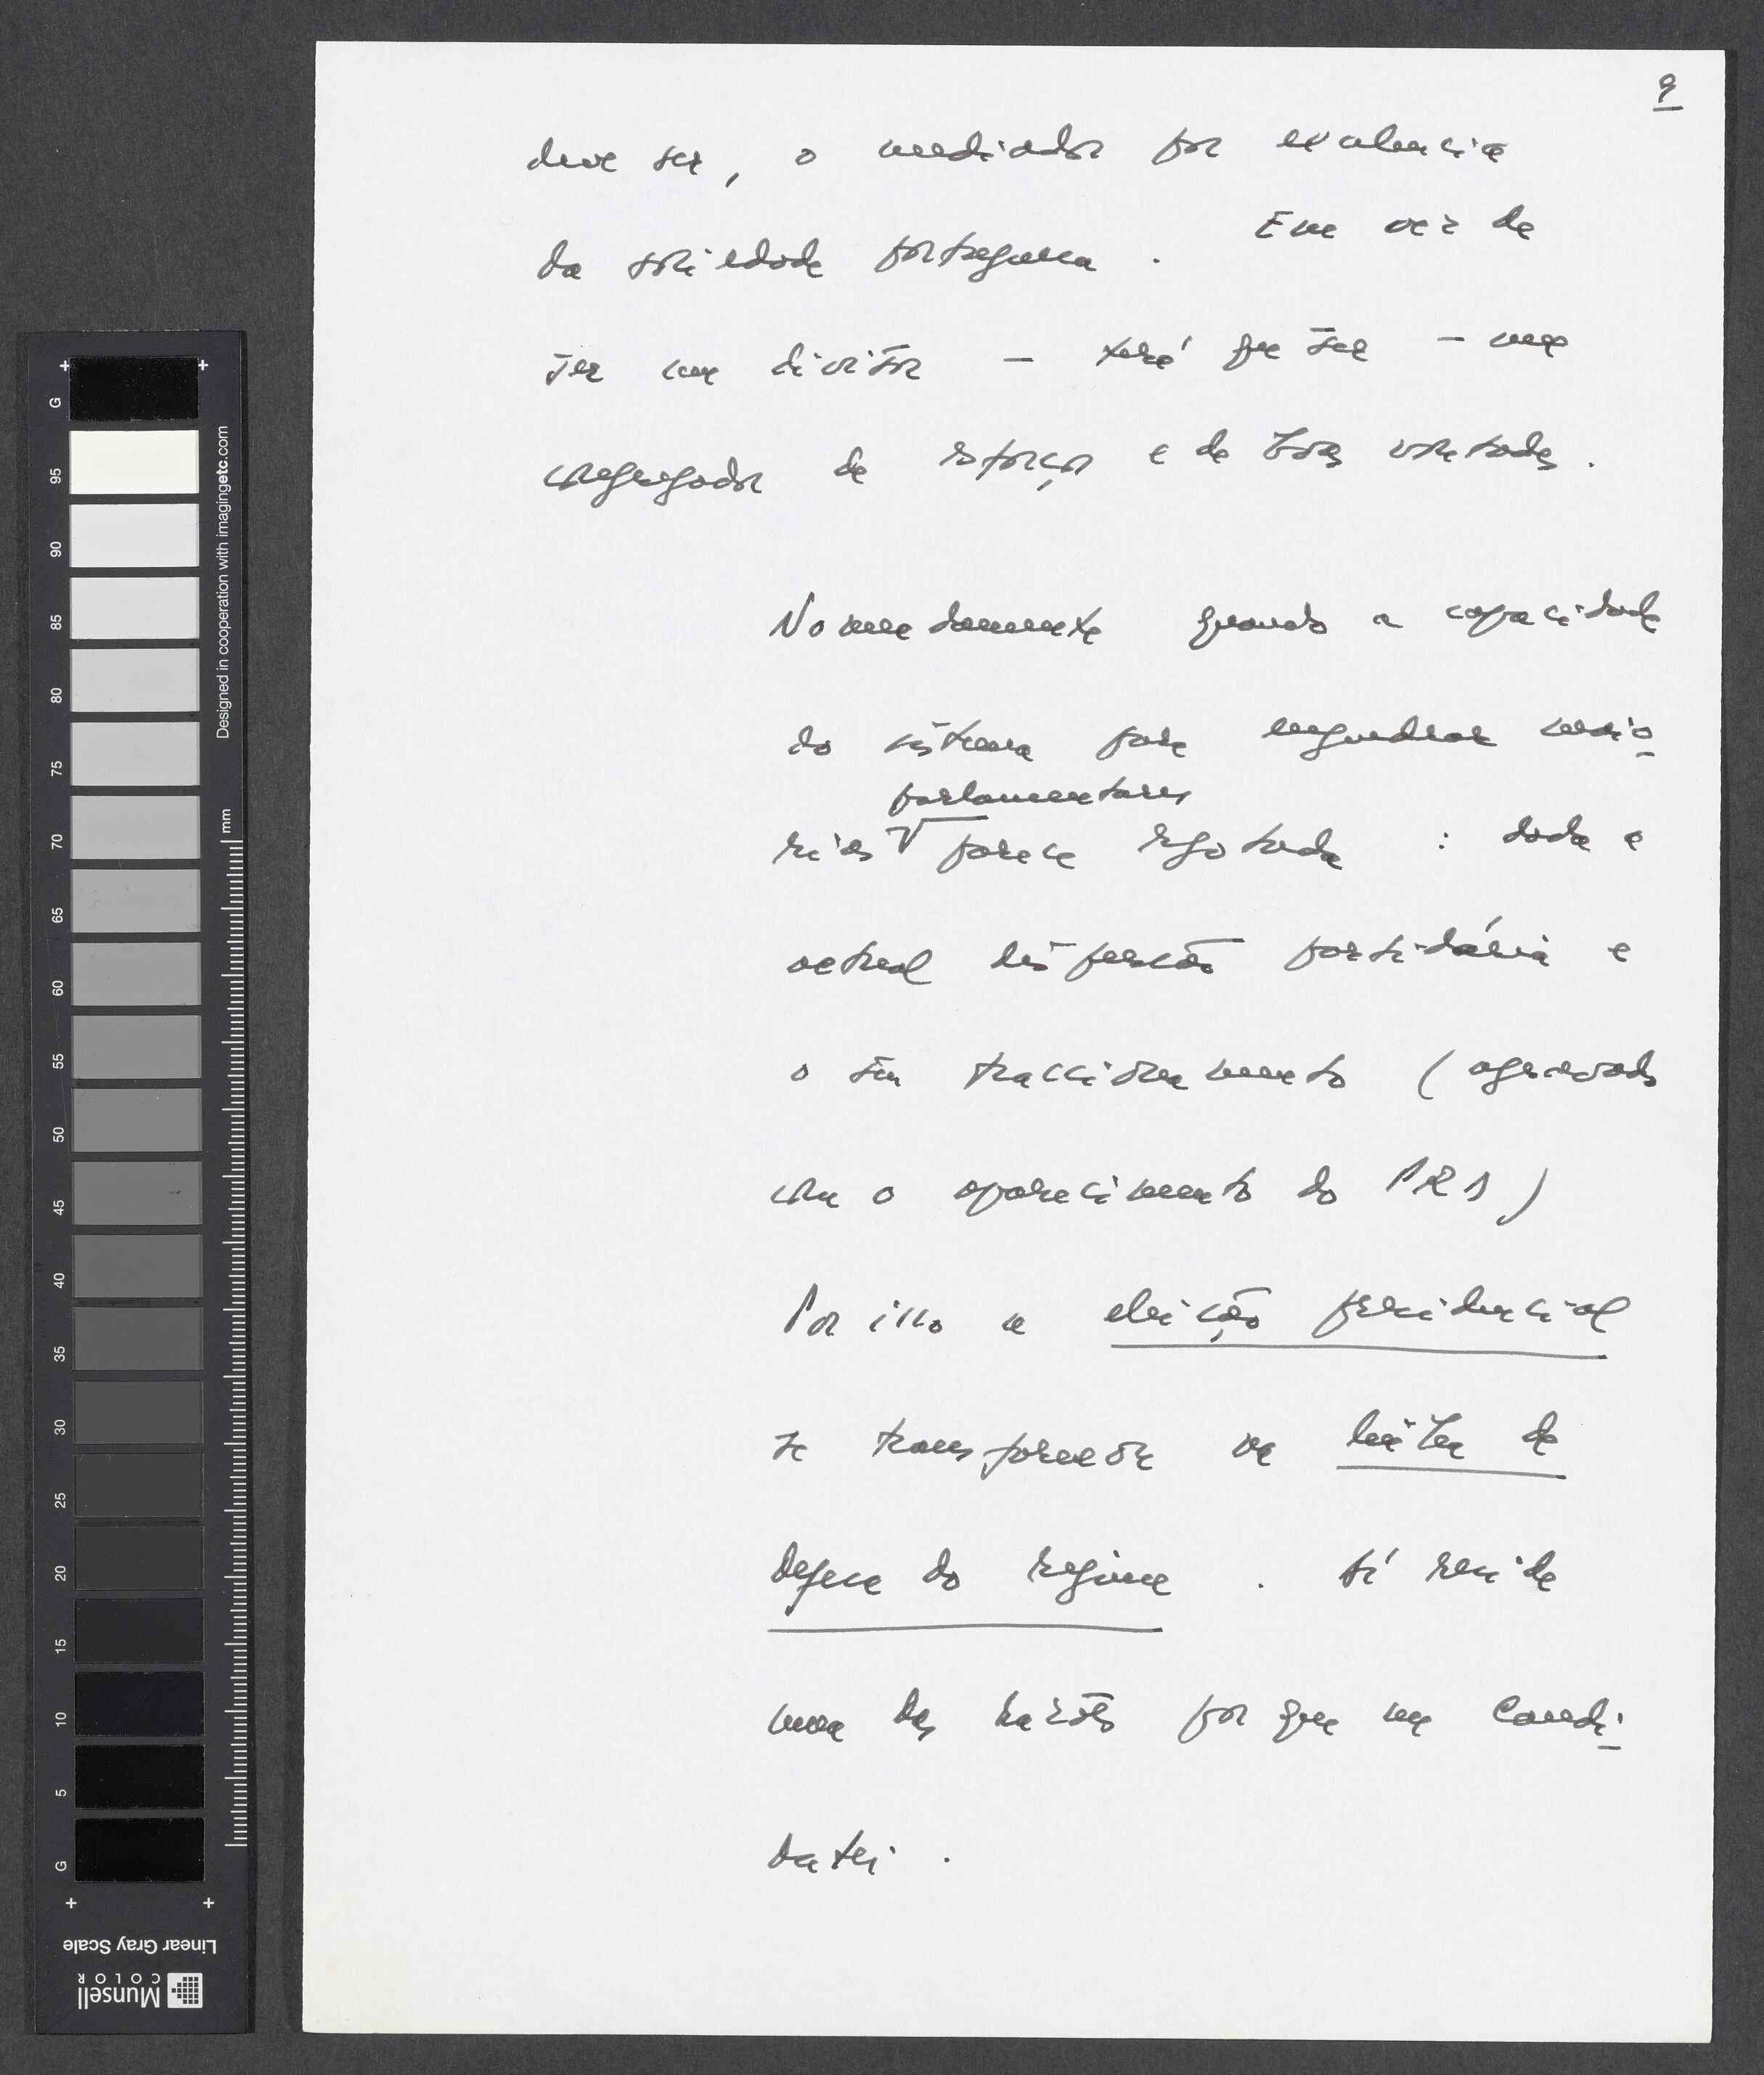 9
deve ser, o mediador por excelência
da sociedade portuguesa. Em vez de
ser um divisor – terá que ser – um
congregador de esforços e de boas vontades.
Nomeadamente quando a capacidade
do sistema para engendrar maio-
parlamentares
rias parece esgotada : dada a
actual dispersão partidária e
o seu fraccionamento (agravado
com o aparecimento do PRD)
Por isso a eleição presidencial
se transformou na
defesa do regime. Aí reside
uma das razões por que me candi-
datei.
G
95
90
85
80
75
70
65
60
55
50
45
40
35
30
25
20
15
10
5
G
mm
Designed in cooperation with imagingetc.com
Linear Gray Scale
Munsell
COLOR